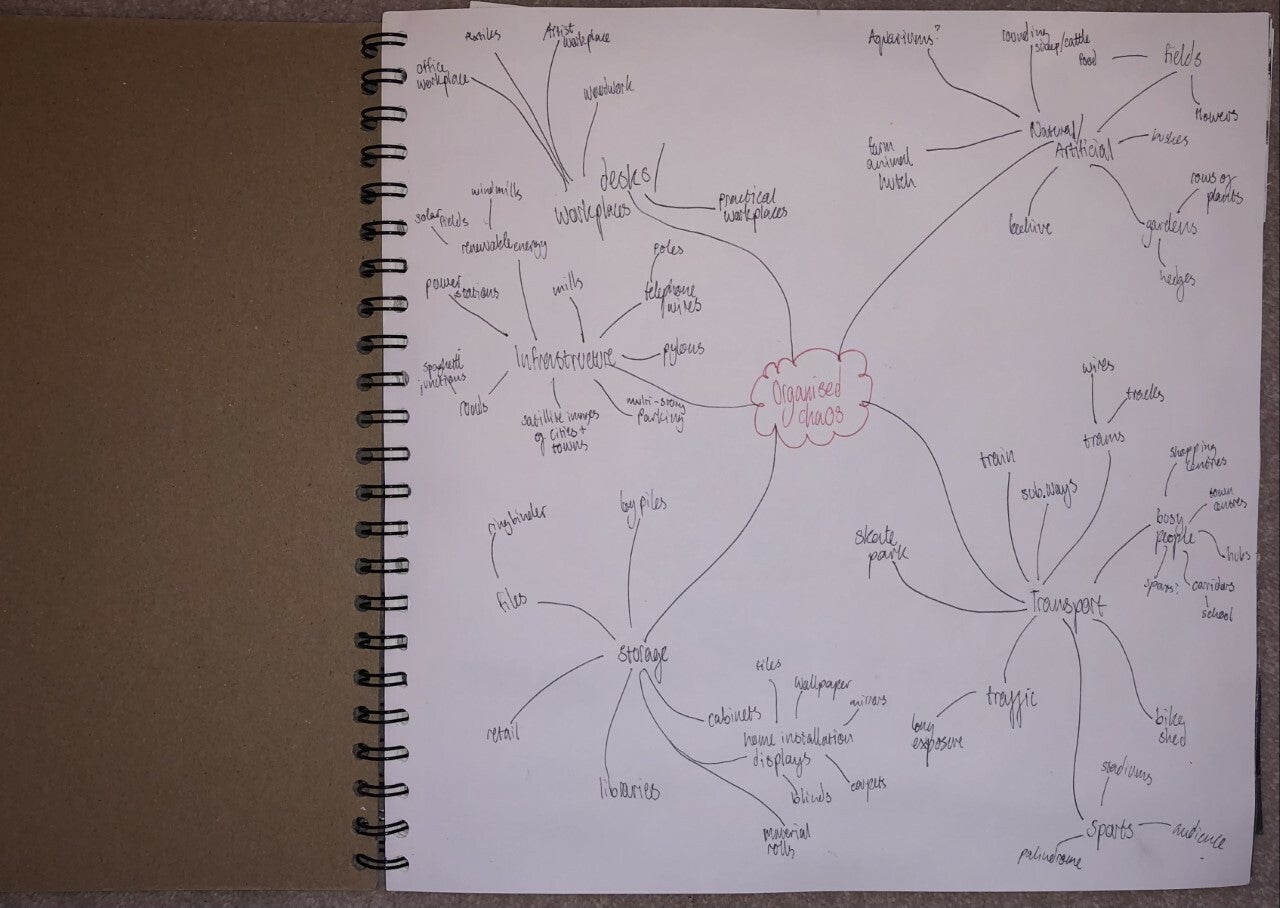 textiles
Artist
workplace
office
workplace
woodwork
desks/
workplaces
practical
workplaces
windmills
solar fields
renewable energy
power
stations
mills
poles
telephone
wires
pylons
Infrastructure
spaghetti
junctions
roads
satellite images
of cities +
towns
multi-story
parking
Organised
chaos
Aquariums?
rounding
sheep/cattle
food
fields
flowers
Natural/
Artificial
bushes
farm
animal
hutch
beehive
rows of
plants
gardens
hedges
wires
tracks
trams
train
sub.ways
shopping
centres
town
centres
busy
people
hubs
sports?
corridors
school
skate
park
Transport
traffic
long
exposure
bike
shed
stadiums
sports
audience
palindrome
ringbinder
by piles
files
storage
retail
libraries
cabinets
tiles
wallpaper
mirrors
home installation
displays
blinds
carpets
material
rolls